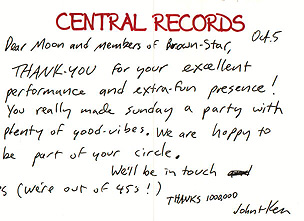 CENTRAL RECORDS
Oct.5
Dear Moon and members of Brown-Star,
THANK-YOU for your excellent
performance and extra-fun presence!
You really made sunday a party with
plenty of good-vibes. We are happy to
be part of your circle.
We'll be in touch
PS (we're out of 45s!)
THANKS 1000,000
John + Ken